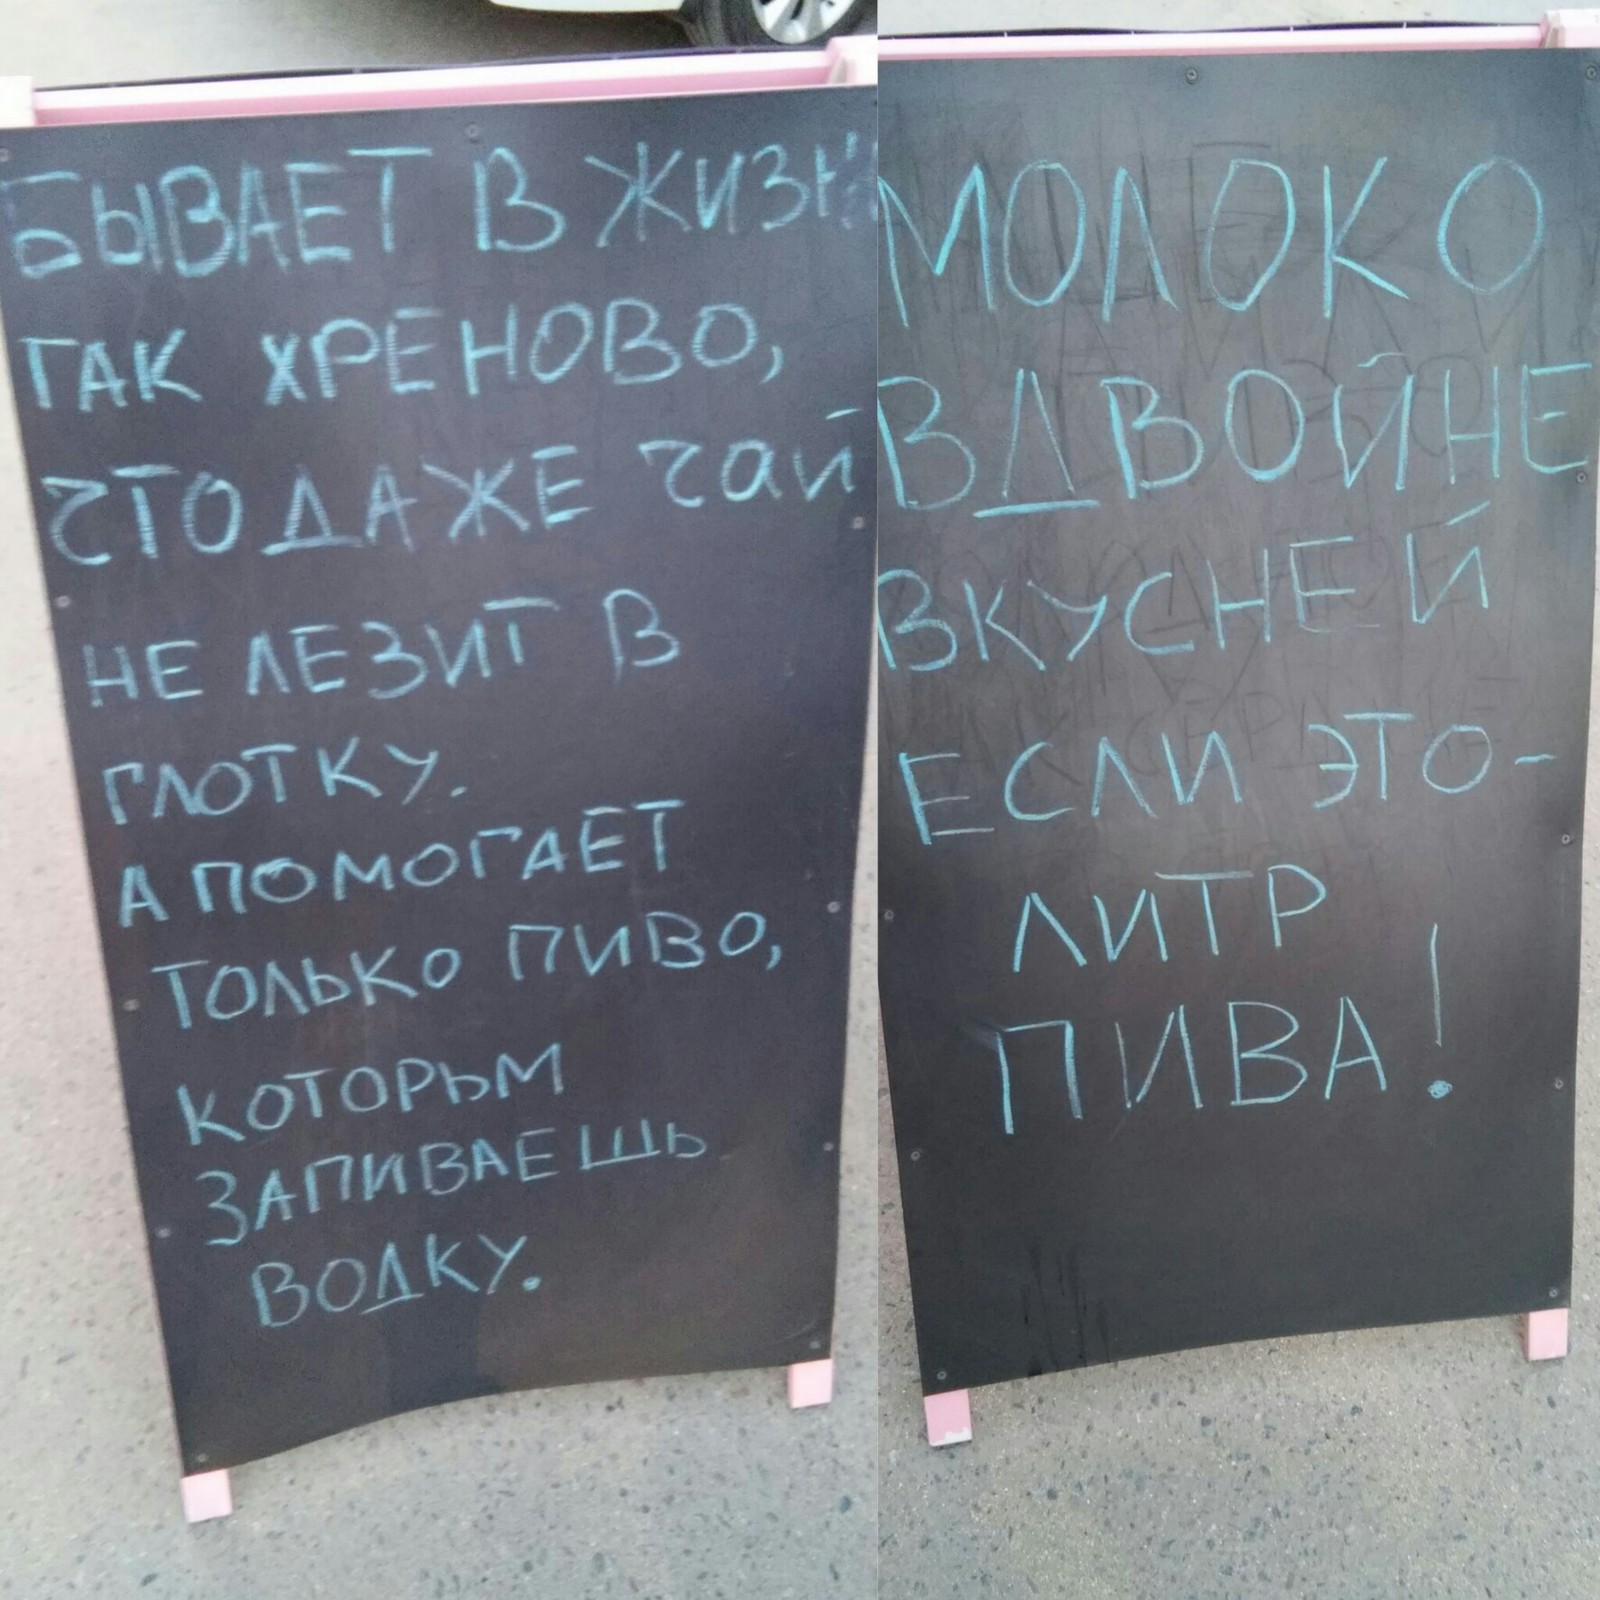 БЫВАЕТ В ЖИЗНИ
ТАК ХРЕНОВО,
ЧТО ДАЖЕ чай
НЕ ЛЕЗИТ В
ГЛОТКУ.
А ПОМОГАЕТ
ТОЛЬКО ПИВО,
КОТОРЬМ
ЗАПИВАЕШЬ
ВОДКУ.
МОЛОКО
ВДВОЙНЕ
ВКУСНЕЙ
ЕСЛИ ЭТО-
ЛИТР
ПИВА!